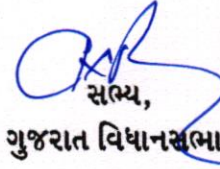 સભ્ય,
ગુજરાત વિધાનસભા